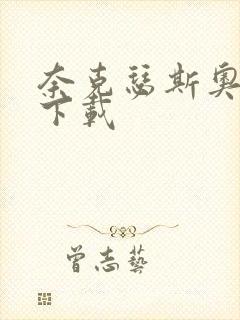 奈克瑟斯奥
下載
曾志藝